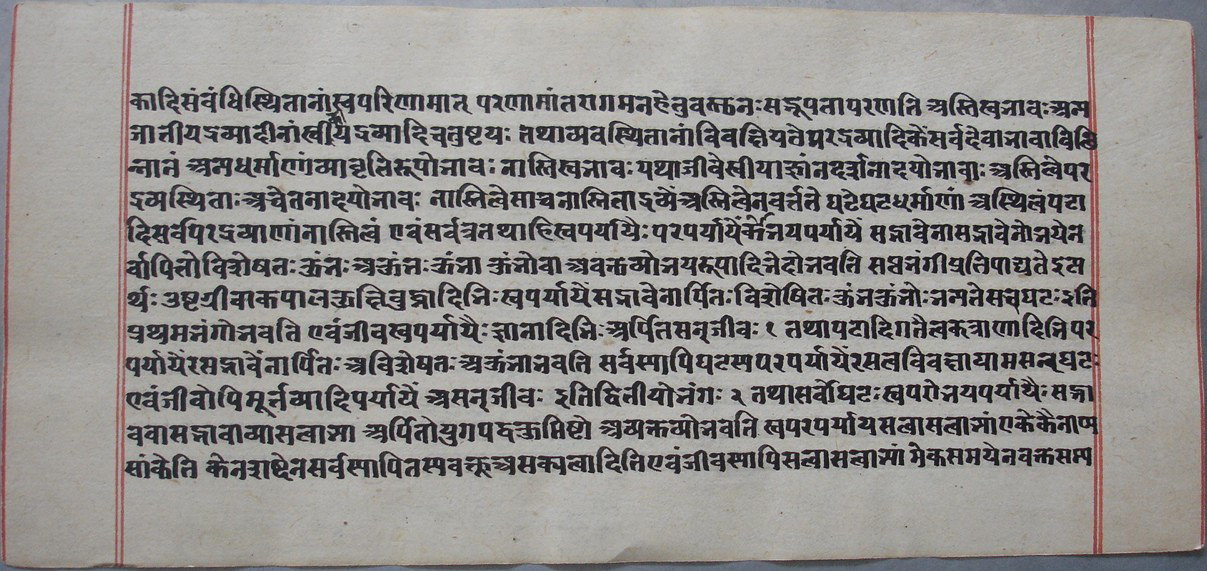 कादिसंबंधिस्थितानां स्वपरिणामात् परणामांतरागमनहेतुवस्तुनः सद्रूपतापरणति अस्तिस्वभावः अन्य
जातीयद्रव्यादीनां स्वीयद्रव्यादिचतुष्टयः तथाव्यवस्थितानां विवक्षितपरद्रव्यादिकैं सर्वदैवाभावाविछि
न्नानं अन्यधर्माणां व्यावृत्तिरूपोभावः नास्तिस्वभावः यथाजीवेस्वीयाज्ञानदर्शनादयोभावाः अस्तित्वेपर
द्रव्यस्थिताः अचेतनादयोभावः नास्तित्वेसाचनास्तिताद्रव्यैं अस्तित्वेनवर्त्तते घटेघटधर्माणां अस्थित्वंपटा
दिसर्वपरद्रव्याणांनास्तित्वं एवंसर्वत्रतथाहिस्वपर्यायैः परपर्यायैं उभयपर्यायैं सद्भावेनासद्भावेनोभयेन
र्वार्पितोविशेषतः कुंभः अकुंभः कुंभा कुंभोवा अवक्तव्योभयरूपादिभेदोभवति सप्तभंगीप्रतिपाद्यतेइत्य
र्थः उष्टग्रीवाकपालकुक्षिबुद्धादिभिः स्वपर्यायैसद्भावेनार्पितः विशेषितः कुंभकुंभोः भण्यतेसत्घटः इति
प्रथमभंगोभवति एवंजीवस्वपर्यायैः ज्ञानादिभिः अर्पितसन्जीवः १ तथापटादिगतैत्वक्त्राणादिभिपर
पर्यायैरसद्भावैंनार्पितः अविशेषतः अकुंभोभवति सर्वस्यापिघटस्यपरपर्यायैरसत्वविवक्षायामसन्घटः
एवंजीवोपिमूर्त्तव्यादिपर्यायैं असन्जीवः इतिद्वितीयोभंगः २ तथासर्वोघटः स्वपरोभयपर्यायैः सद्भा
ववासद्भावाव्यासत्वाभ्या अर्पितोयुगपद्वक्तमिष्टो अव्यक्तव्योभवति स्वपरपर्यायसत्वासत्वाभ्यांएकेकैनाप्य
सांकेति केनशब्देनसर्वस्यापितस्यवक्तुअसक्यत्वादितिएवंजीवस्यापिसत्वासत्वाभ्यां मेकसमयेनवक्तसम्प